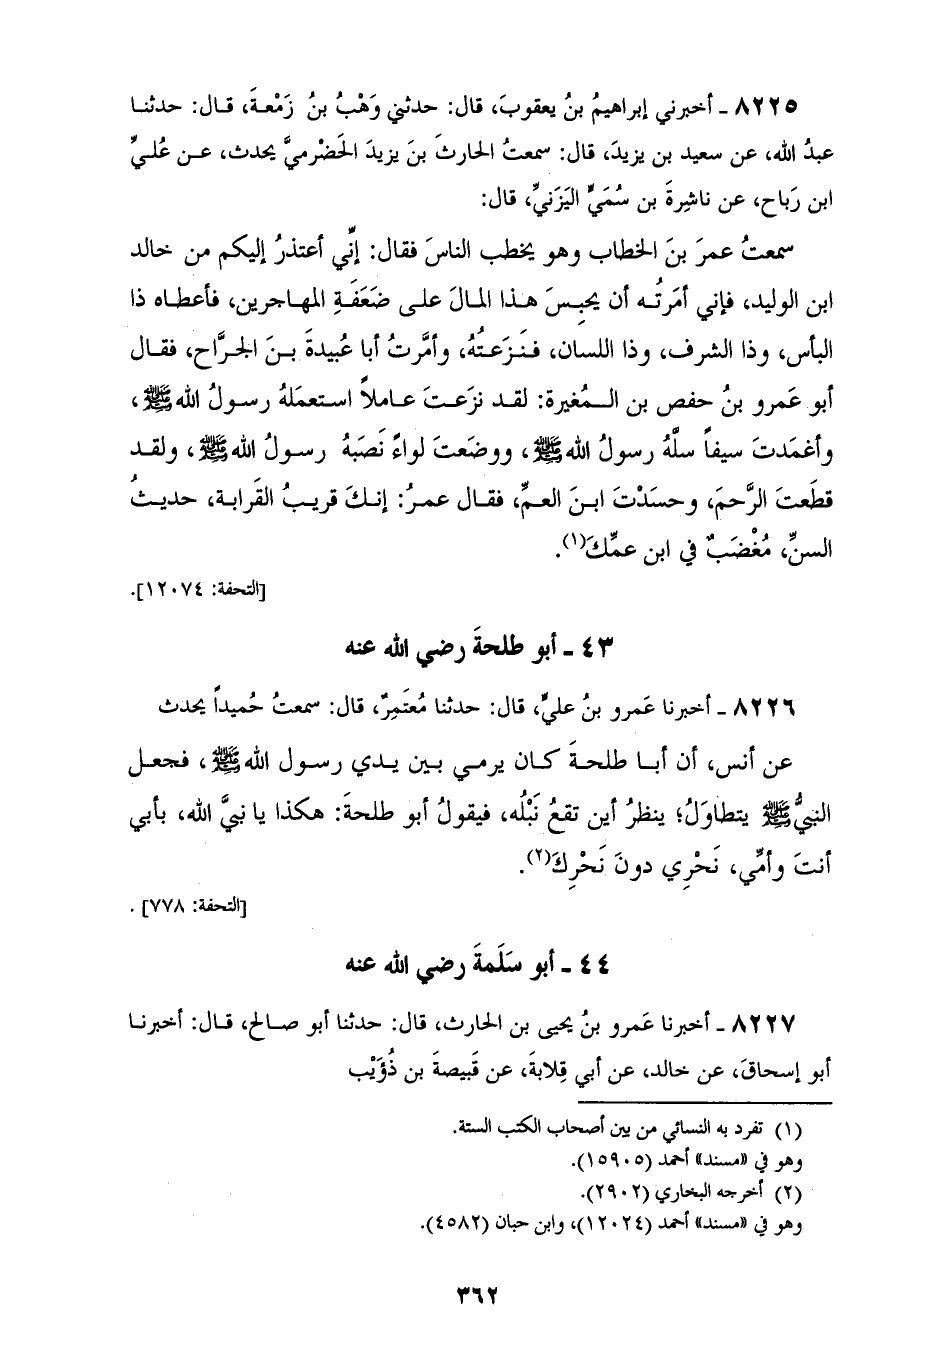 ٨٢٢٥ ـ أخبرني إبراهيمُ بنُ يعقوبَ، قال: حدثني وَهْبُ بنُ زَمْعةَ، قـال: حدثنـا
عبدُ الله، عن سعيد بن يزيدَ، قال: سمعتُ الحارثَ بنَ يزيدَ الحَضْرميَّ يحدث، عـن عُلـيِّ
ابن رَباح، عن ناشِرةَ بن سُمَيٍّ اليَزَنيِّ، قال:
سمعتُ عمرَ بنَ الخطاب وهو يخطب الناسَ فقال: إنِّي أعتذرُ إليكم من خالد
ابن الوليد، فإني أمَرتُـه أن يحبِـسَ هـذا المـالَ علـى ضَعَفَـةِ المهـاجرين، فأعطـاه ذا
البأس، وذا الشرف، وذا اللسان، فـنَـزَعـتُهُ، وأمَّرتُ أبا عُبيدةَ بـنَ الجـرَّاح، فقـال
أبو عَمرو بنُ حفص بن الـمُغيرة: لقـد نزَعـتَ عـاملاً استعمَلهُ رسـولُ اللهﷺ،
وأغمَدتَ سيفاً سلَّهُ رسولُ اللهﷺ، ووضَعتَ لواءً نَصَبَهُ رسـولُ اللهﷺ، ولقـد
قطَعتَ الرَّحمَ، وحسَدْتَ ابـنَ العـمِّ، فقـال عمـرُ: إنـكَ قريـبُ القَرابـة، حديـثُ
السنِّ، مُغْضَبٌ في ابن عمِّكَ(١).
[التحفة: ١٢٠٧٤].
٤٣ ـ أبو طلحةَ رضي الله عنه
٨٢٢٦ ـ أخبرنا عَمرو بنُ عليٍّ، قال: حدثنا مُعتَمِرٌ، قال: سمعتُ حُميداً يحدث
عن أنس، أن أبـا طلحـةَ كـان يرمـي بـين يـدي رسـول اللهﷺ، فجعـل
النبيُّﷺ يتطاوَلُ؛ ينظرُ أين تقعُ نَبْلُه، فيقولُ أبو طلحةَ: هكذا يا نبيَّ الله، بأبي
أنتَ وأمِّي، نَحْرِي دونَ نَحْرِكَ(٢).
[التحفة: ٧٧٨].
٤٤ ـ أبو سَلَمةَ رضي الله عنه
٨٢٢٧ ـ أخبرنا عَمرو بنُ يحيى بن الحارث، قال: حدثنا أبو صـالح، قـال: أخبرنـا
أبو إسحاقَ، عن خالد، عن أبي قِلابةَ، عن قَبيصةَ بن ذُؤَيْب
(١) تفرد به النسائي من بين أصحاب الكتب الستة.
وهو في «مسند» أحمد (١٥٩٠٥).
(٢) أخرجه البخاري (٢٩٠٢).
وهو في «مسند» أحمد (١٢٠٢٤)، وابن حبان (٤٥٨٢).
٣٦٢